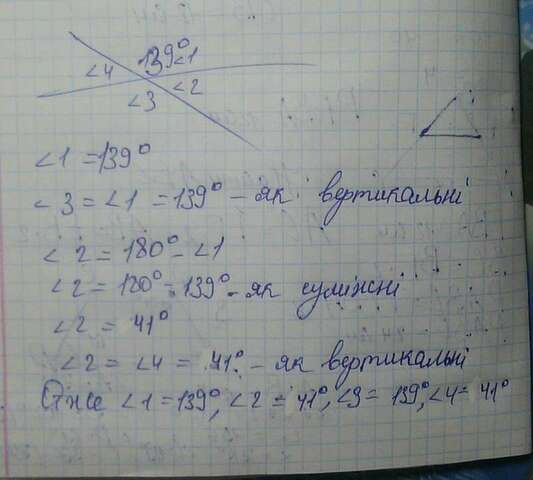 139° ∠1
∠4 ∠2
∠3
∠1 = 139°
∠3 = ∠1 = 139° - як вертикальні
∠2 = 180° - ∠1
∠2 = 180° - 139° - як суміжні
∠2 = 41°
∠2 = ∠4 = 41° - як вертикальні
Отже ∠1 = 139°, ∠2 = 41°, ∠3 = 139°, ∠4 = 41°